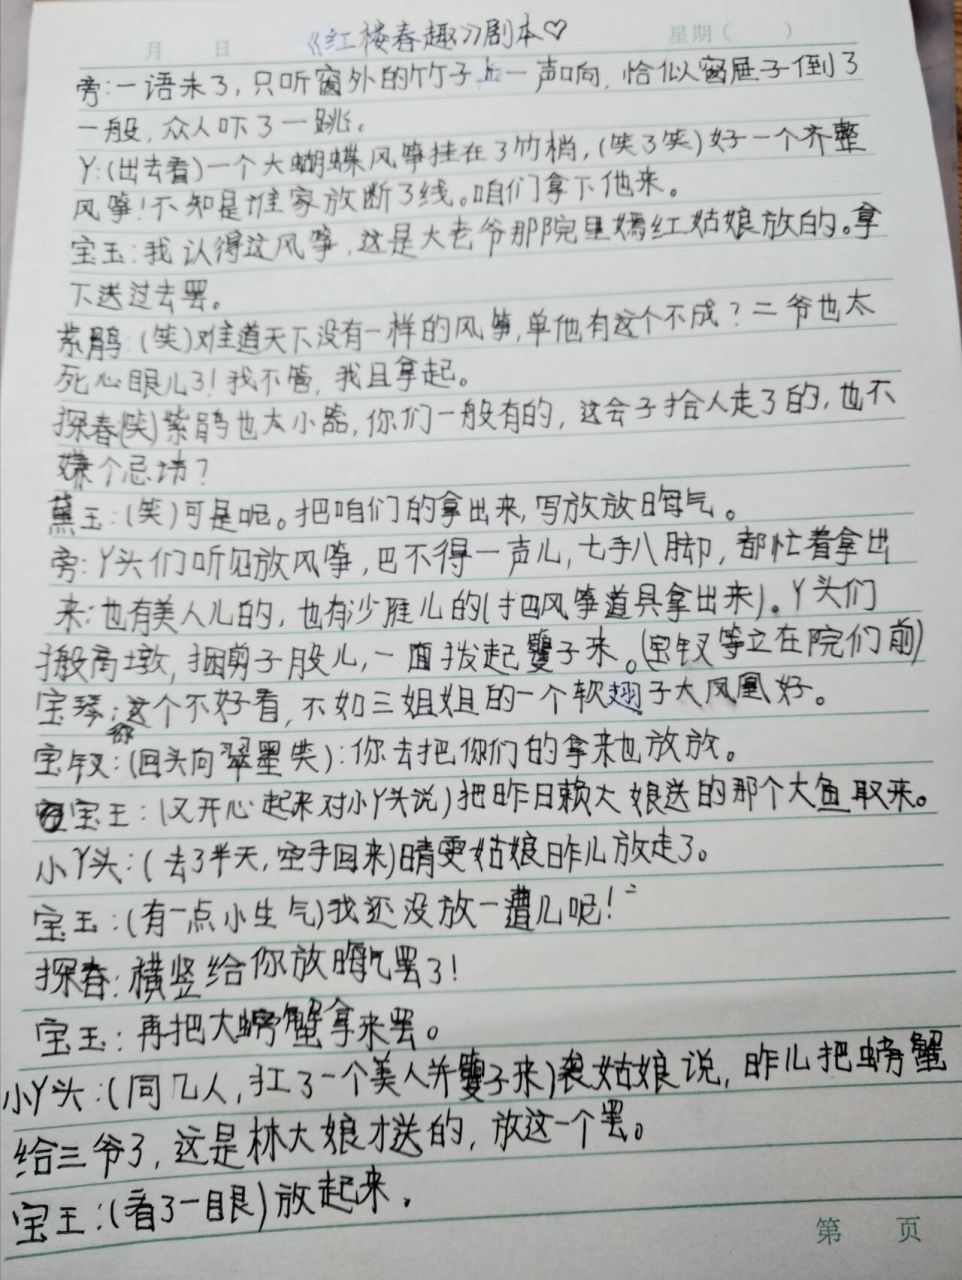 月 日 《红楼春趣》剧本♡ 星期( )
旁:一语未了,只听窗外的竹子上一声响,恰似窗屉子倒了
一般,众人吓了一跳。
丫:(出去看)一个大蝴蝶风筝挂在了竹梢,(笑了笑)好一个齐整
风筝!不知是谁家放断了线。咱们拿下他来。
宝玉:我认得这风筝,这是大老爷那院里嫣红姑娘放的。拿
下送过去罢。
紫鹃:(笑)难道天下没有一样的风筝,单他有这个不成?二爷也太
死心眼儿了!我不管,我且拿起。
探春(笑)紫鹃也太小器,你们一般有的,这会子拾人走了的,也不
嫌个忌讳?
黛玉:(笑)可是呢。把咱们的拿出来,写放放晦气。
旁:丫头们听见放风筝,巴不得一声儿,七手八脚,都忙着拿出
来:也有美人儿的,也有沙雁儿的(把风筝道具拿出来)。丫头们
搬高墩,捆剪子股儿,一面拨起籰子来。(宝钗等立在院们前)
宝琴:你这个不好看,不如三姐姐的一个软翅子大凤凰好。
宝钗:(回头向翠墨笑):你去把你们的拿来也放放。
宝玉:(又开心起来对小丫头说)把昨日赖大娘送的那个大鱼取来。
小丫头:(去了半天,空手回来)晴雯姑娘昨儿放走了。
宝玉:(有一点小生气)我还没放一遭儿呢!
探春:横竖给你放晦气罢了!
宝玉:再把大螃蟹拿来罢。
小丫头:(同几人,扛了一个美人并籰子来)袭姑娘说,昨儿把螃蟹
给三爷了,这是林大娘才送的,放这一个罢。
宝玉:(看了一眼)放起来.
第 页